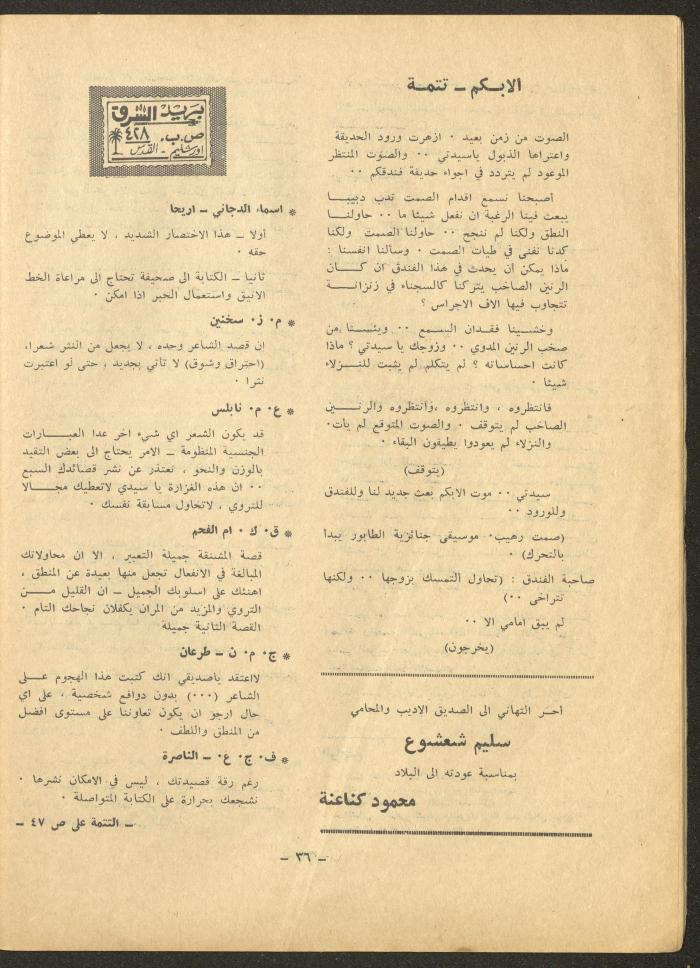 الابـكم ــ تتمـة
الصوت من زمن بعيد ٠ ازهرت ورود الحديقة
واعتراها الذبول ياسيدتي ٠٠ والصوت المنتظر
الموعود لم يتردد في اجواء حديقة فندقكم ٠٠
أصبحنا نسمع اقدام الصمت تدب دبيبـا
يبعث فينا الرغبة ان نفعل شيئا ما ٠٠ حاولنـا
النطق ولكنا لم ننجح ٠٠ حاولنا الصمت ولكنا
كدنا نفنى في طيات الصمت ٠ وسألنا انفسنا :
ماذا يمكن ان يحدث في هذا الفندق ان كـان
الرنين الصاخب يتركنا كالسجناء في زنزانـة
تتجاوب فيها الاف الاجراس ؟
وخشـينا فقـدان السمع ٠٠ ويئسـنا من
صخب الرنين المدوي ٠٠ وزوجك يا سيدتي ؟ ماذا
كانت احساساته ؟ لم يتكلم لم يثبت للنـزلاء
شيئا ٠
فانتظروه ، وانتظروه ،وانتظروه والرنـين
الصاخب لم يتوقف ٠ والصوت المتوقع لم يأت٠
والنزلاء لم يعودوا يطيقون البقاء ٠
(يتوقف)
سيدتي ٠٠ موت الابكم بعث جديد لنا وللفندق
وللورود ٠٠
(صمت رهيب٠ موسيقى جنائزية الطابور يبدأ
بالتحرك) ٠
صاحبة الفندق : (تحاول التمسك بزوجها ٠٠ ولكنها
تتراخى ٠٠)
لم يبق امامي الا ٠٠
(يخرجون)
أحـر التهاني الى الصديق الاديب والمحامي
سليم شعشوع
بمناسبة عودته الى البلاد
محمود كناعنة
بريد الشرق
ص.ب. ٤٢٨
اورشليم - القدس
* اسماء الدجاني ــ اريحا
أولا ــ هذا الاختصار الشديد ، لا يعطي الموضوع
حقه ٠
ثانيا ــ الكتابة الى صحيفة تحتاج الى مراعاة الخط
الانيق واستعمال الحبر اذا امكن ٠
* م٠ ز٠ سخنين
ان قصد الشاعر وحده ، لا يجعل من النثر شعرا،
(احتراق وشوق) لا تأتي بجديد ، حتى لو اعتبرت
نثرا ٠
* ع٠ م٠ نابلس
قد يكون الشعر اي شيء اخر عدا العبـارات
الجنسية المنظومة ــ الامر يحتاج الى بعض التقيد
بالوزن والنحو ، نعتذر عن نشر قصائدك السبع
٠٠ ان هذه الغزارة يا سيدي لاتعطيك مجـالا
للتروي ، لاتحاول مسابقة نفسك ٠
* ق٠ ك ٠ ام الفحم
قصة المشنقة جميلة التعبير ، الا ان محاولاتك
المبالغة في الانفعال تجعل منها بعيدة عن المنطق ،
اهنئك على اسلوبك الجميل ــ ان القليل مـن
التروي والمزيد من المران يكفلان نجاحك التام ٠
القصة الثانية جميلة
* ج٠ م٠ ن ــ طرعان
لااعتقد ياصديقي انك كتبت هذا الهجوم علـى
الشاعر (٠٠٠) بدون دوافع شخصية ، على اي
حال ارجو ان يكون تعاوننا على مستوى افضل
من المنطق واللطف ٠
* ف٠ ج٠ ع٠ ــ الناصرة
رغم رقة قصيدتك ، ليس في الامكان نشرها ٠
نشجعك بحرارة على الكتابة المتواصلة ٠
ــ التتمة على ص ٤٧ ــ
ــ ٣٦ ــ